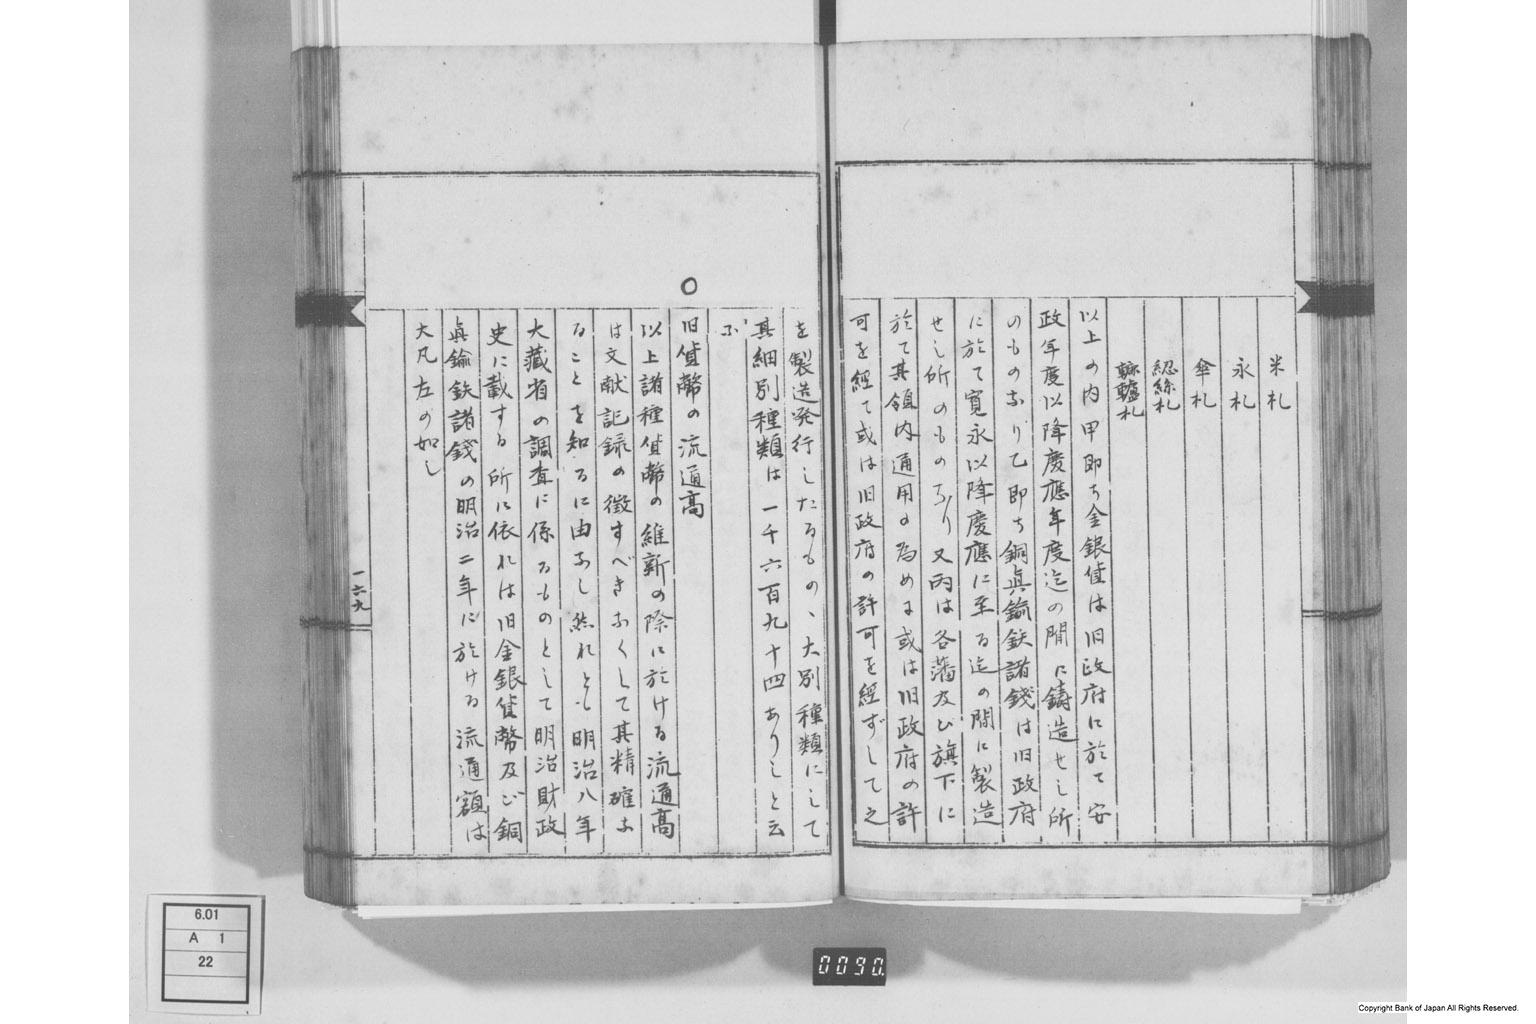 米札
永札
傘札
総絲札
轆轤札
以上の内甲即ち金銀貨は旧政府に於て安
政年度以降慶應年度迄の間に鋳造せし所
のものなり乙即ち銅眞鍮鉄諸錢は旧政府
に於て寛永以降慶應に至る迄の間に製造
せし所のものなり又丙は各藩及び旗下に
於て其領内通用の為めに或は旧政府の許
可を経て或は旧政府の許可を經ずして之
を製造発行したるもの、大別種類にして
其細別種類は一千六百九十四ありしと云
ふ
○
旧貨幣の流通高
以上諸種貨幣の維新の際に於ける流通高
は文献記録の徴すべきなくして其精確な
ることを知るに由なし然れとも明治八年
大藏省の調査に係るものとして明治財政
史に載する所に依れは旧金銀貨幣及び銅
眞鍮鉄諸錢の明治二年に於ける流通額は
大凡左の如し
一六九
6.01
A 1
22
0090.
Copyright Bank of Japan All Rights Reserved.